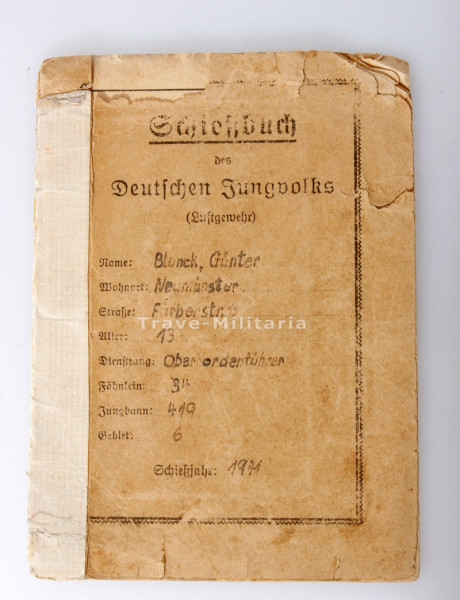 Schießbuch
des
Deutschen Jungvolks
(Luftgewehr)
Name: Blunck, Günter
Wohnort: Neumünster.
Straße: Färberstr.
Trave-Militaria
Alter: 13
Dienstrang: Oberhordenführer
Fähnlein: 34
Jungbann: 419
Gebiet: 6
Schießjahr: 1941